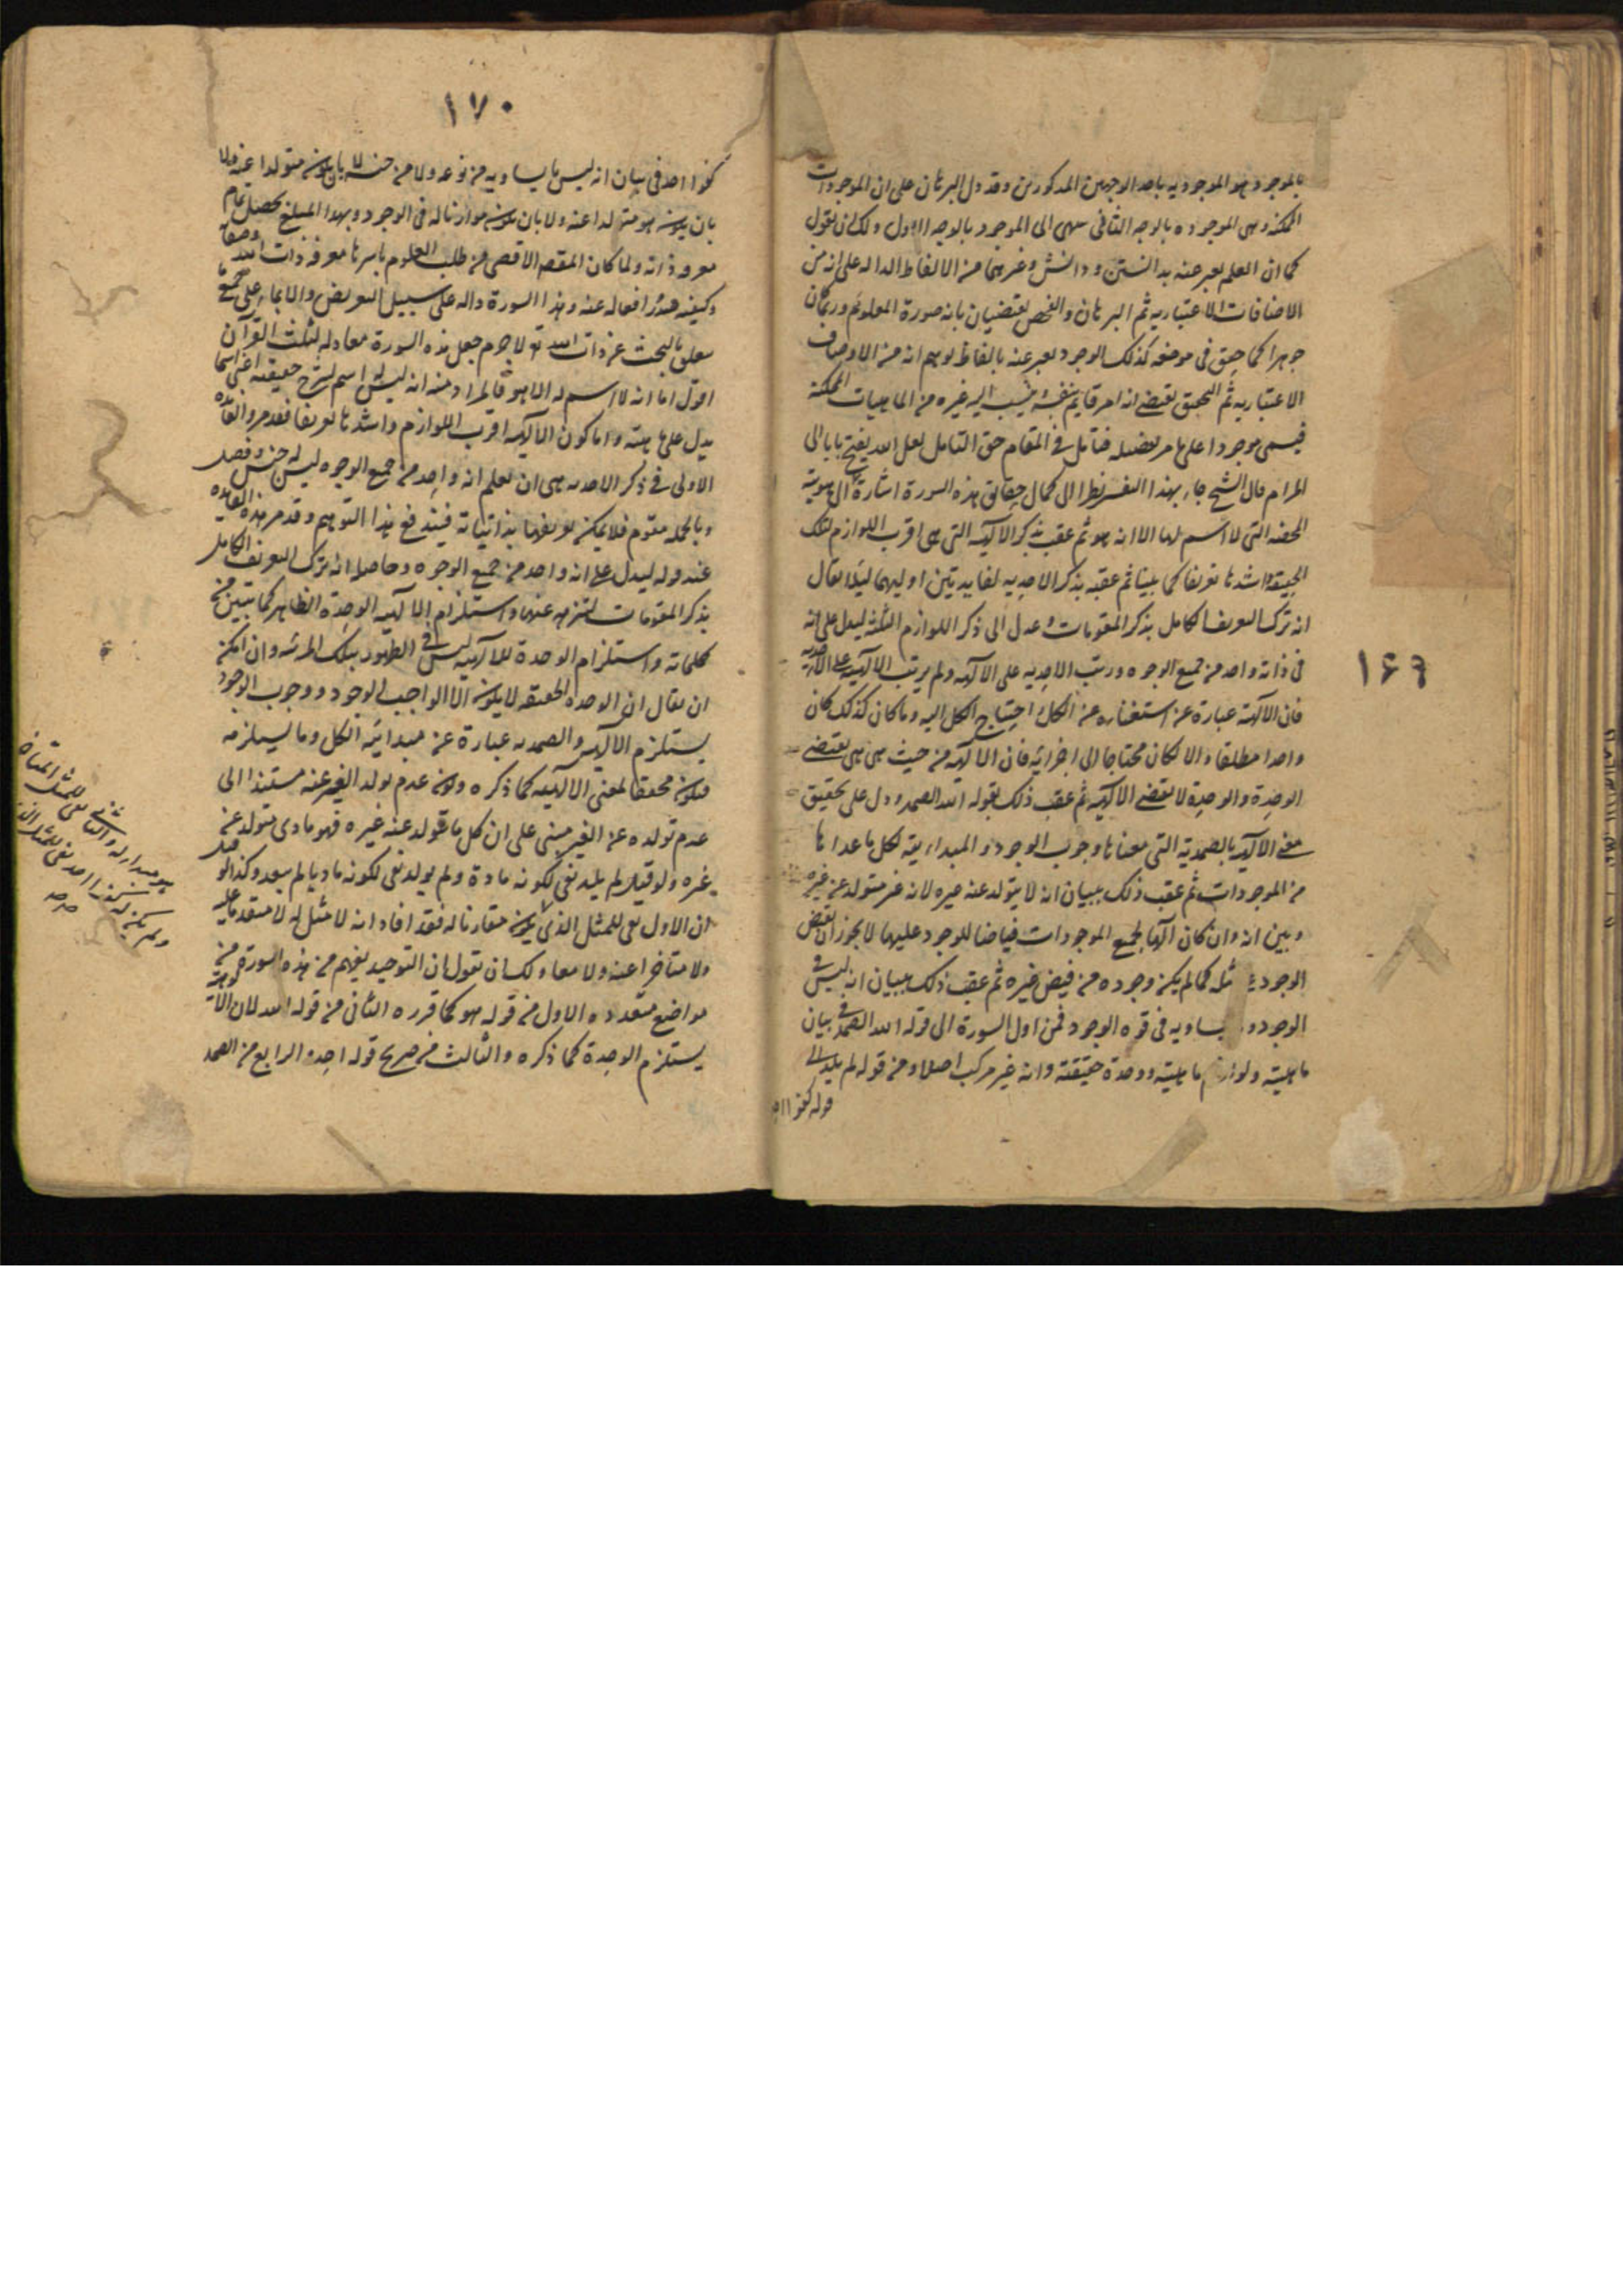 بالموجود هو الموجوديه باحد الوجهين المذكورين وقد دل البرهان على ان الموجودات
الممكنه وهى الموجوده بالوجه الثانى ينتهى الى الموجود بالوجه الاول ولك ان تقول
كما ان العلم يعبر عنه بدانستن ودانش وغيرهما من الالفاظ الداله على انه من
الاضافات الاعتباريه ثم البرهان والفحص يقتضيان بانه صورة المعلوم وربما كان
جوهرا كما حقق فى موضعه كذلك الوجود يعبر عنه بالفاظ توهم انه من الاوصاف
الاعتباريه ثم التحقيق يقتضى انه امر قايم بنفسه ينسب اليه غيره من الماهيات الممكنة
فيسمى موجودا على ما مر تفصيله فتامل فى المقام حق التامل لعل الله يفتح بابا الى
المرام قال الشيخ بهذا التفسير نظرا الى كمال حقائق هذه السورة اشارة الى هويته
المحضه التى لا اسم لها الا انه هو ثم عقب بذكر الآلهيه التى هى اقرب اللوازم لتلك
الحقيقة واشدها تعريفا كما بينا ثم عقبه بذكر الاحديه لفايدتين اوليهما ليلا يقال
انه ترك التعريف الكامل بذكر المقومات وعدل الى ذكر اللوازم الثانيه ليدل على انه
فى ذاته واحد من جميع الوجوه ورتب الاحديه على الآلهيه ولم يرتب الالهيه على الاحديه
فان الآلهية عبارة عن استغنائه عن الكل و احتياج الكل اليه وما كان كذلك كان
واحدا مطلقا والا لكان محتاجا الى اجزائه فان الالهيه من حيث هى هى يقتضى
الوحدة والوحدة لا تقتضى الالهيه ثم عقب ذلك بقوله الله الصمد ودل على تحقيق
معنى الالهيه بالصمدية التى معناها وجوب الوجود والمبدائية لكل ما عداها
من الموجودات ثم عقب ذلك ببيان انه لا يتولد عنه غيره لانه غير متولد عن غيره
وبين انه وان كان آلها لجميع الموجودات فياضا للوجود عليها لا يجوز ان يفيض
الوجود على مثله كما لم يكن وجوده من فيض غيره ثم عقب ذلك ببيان انه ليس فى
الوجود ما يساويه فى قوة الوجود فمن اول السورة الى قوله الله الصمد فى بيان
ماهيته ولوازم ماهيته ووحدة حقيقته وانه غير مركب اصلا ومن قوله لم يلد الى
قوله كفوا احد
١۶۹
١٧٠
كفوا احد فى بيان انه ليس ما يساويه من نوعه ولا من جنسه لا بان يكون متولدا عنه ولا
بان يكون هو متولدا عنه ولا بان يكون موازنا له فى الوجود وبهذا المبلغ يحصل تمام
معرفه ذاته ولما كان المقصد الاقصى من طلب العلوم باسرها معرفه ذات الله وصفاته
وكيفيه صدور افعاله عنه وهذا السورة داله على سبيل التعريض والايماء على جميع ما
يتعلق بالبحث عن ذات الله تع لا جرم جعل هذه السورة معادله لثلث القرآن
اقول اما انه لا اسم له الا هو فالمراد منه انه ليس له اسم يشرح حقيقته اعنى اسما
يدل على ماهيته واما كون الالهيه اقرب اللوازم واشدها تعريفا فقد مر والفايده
الاولى فى ذكر الاحديه هى ان يعلم انه واحد من جميع الوجوه ليس له جنس وفصل
وبالجمله مقوم فلا يمكن تعريفها بذاتياته فيندفع هذا التوهم وقد مر هذه الفايده
عند قوله ليدل على انه واحد من جميع الوجوه وحاصله انه ترك التعريف الكامل
بذكر المقومات لتنزهه عنها واستلزام الالهيه الوحدة الظاهر كما تبين من
كلماته واستلزام الوحدة للالهيه ليس فى الظهور بتلك المرتبه وان امكن
ان يقال ان الوحده الحقيقه لا يكون الا الواجب الوجود ووجوب الوجود
يستلزم الالهيه والصمديه عبارة عن مبدائيه الكل وما يستلزمه
فيكون محققا لمعنى الالهيه كما ذكره وكون عدم تولد الغير عنه مستندا الى
عدم تولده عن الغير مبنى على ان كل ما يتولد عنه غيره فهو مادى متولد عن
غيره ولو قيل لم يلد نفى لكونه مادة ولم يولد نفى لكونه ماديا لم يبعد وكذا لو قيل
ان الاول نفى للمثل الذى يكون مقارنا له فقد افاد انه لا مثل له لا متقدما عليه
ولا متاخرا عنه ولا معا ولك ان تقول ان التوحيد يفهم من هذه السورة من
مواضع متعدده الاول من قوله هو كما قرره الثانى من قوله الله لان الالوهية
يستلزم الوحدة كما ذكره والثالث من صريح قوله احد والرابع من الصمد
هو مبدا له والثانى نفى للمثل المتاخر
ولم يكن له كفوا احد نفى للمثل الذى